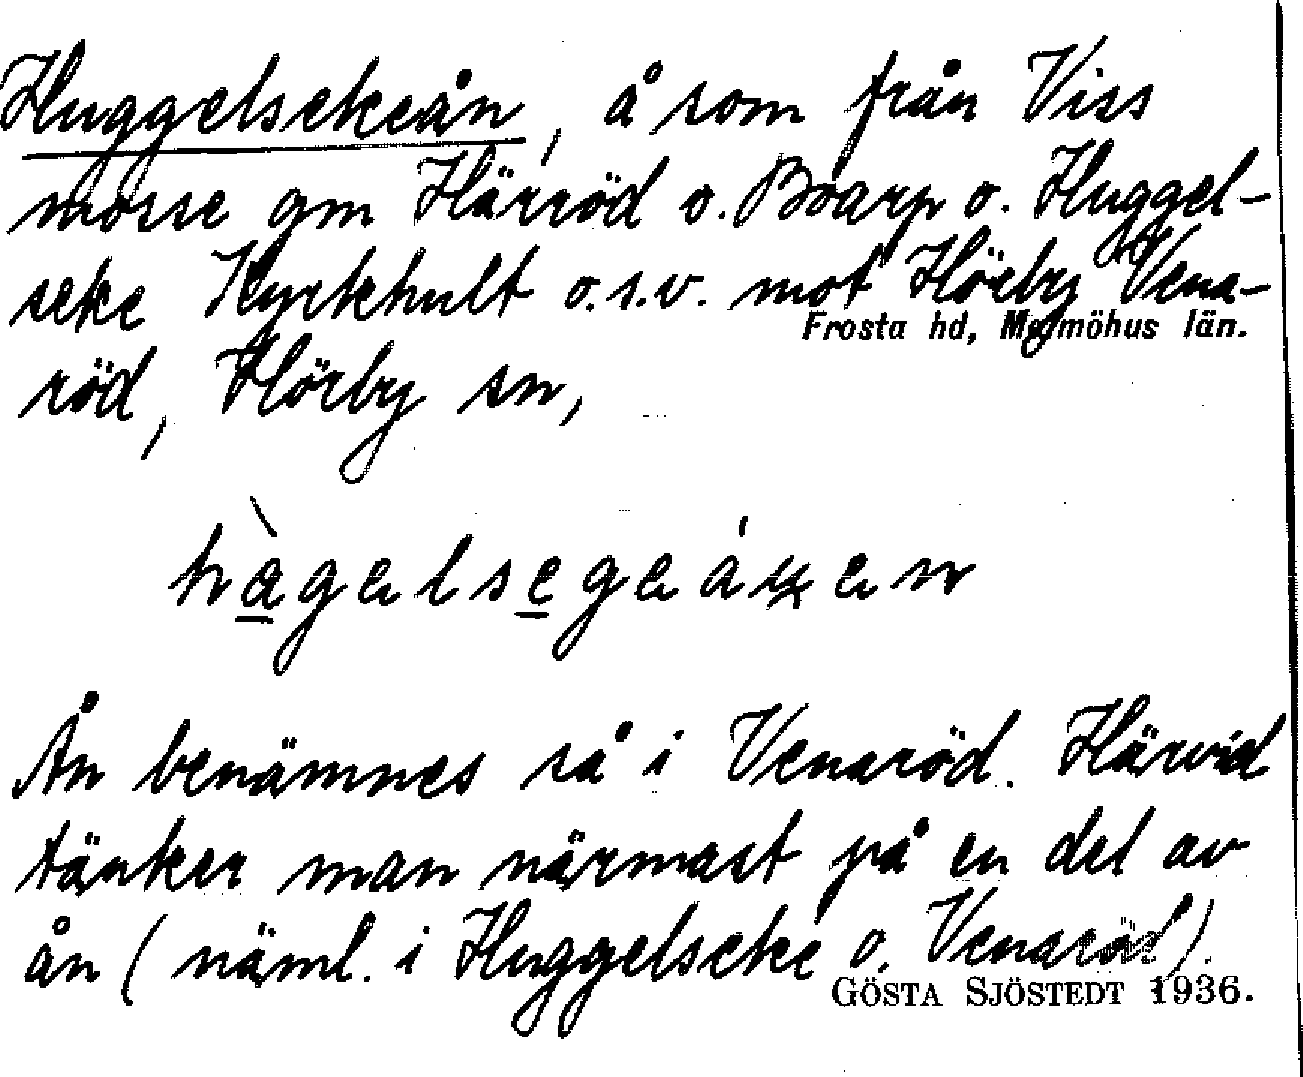 Huggelsekeån, å som från Viss
mosse gm Härröd o. Boarp o. Huggel-
seke Kyrkhult o.s.v. mot Hörby Vena-
Frosta hd, Malmöhus län.
röd, Hörby sn,
hàgelsegeåen
Ån benämnes så i Venaröd. Härvid
tänker man närmast på en del av
ån (näml. i Huggelseke o. Venaröd).
GÖSTA SJÖSTEDT 1936.